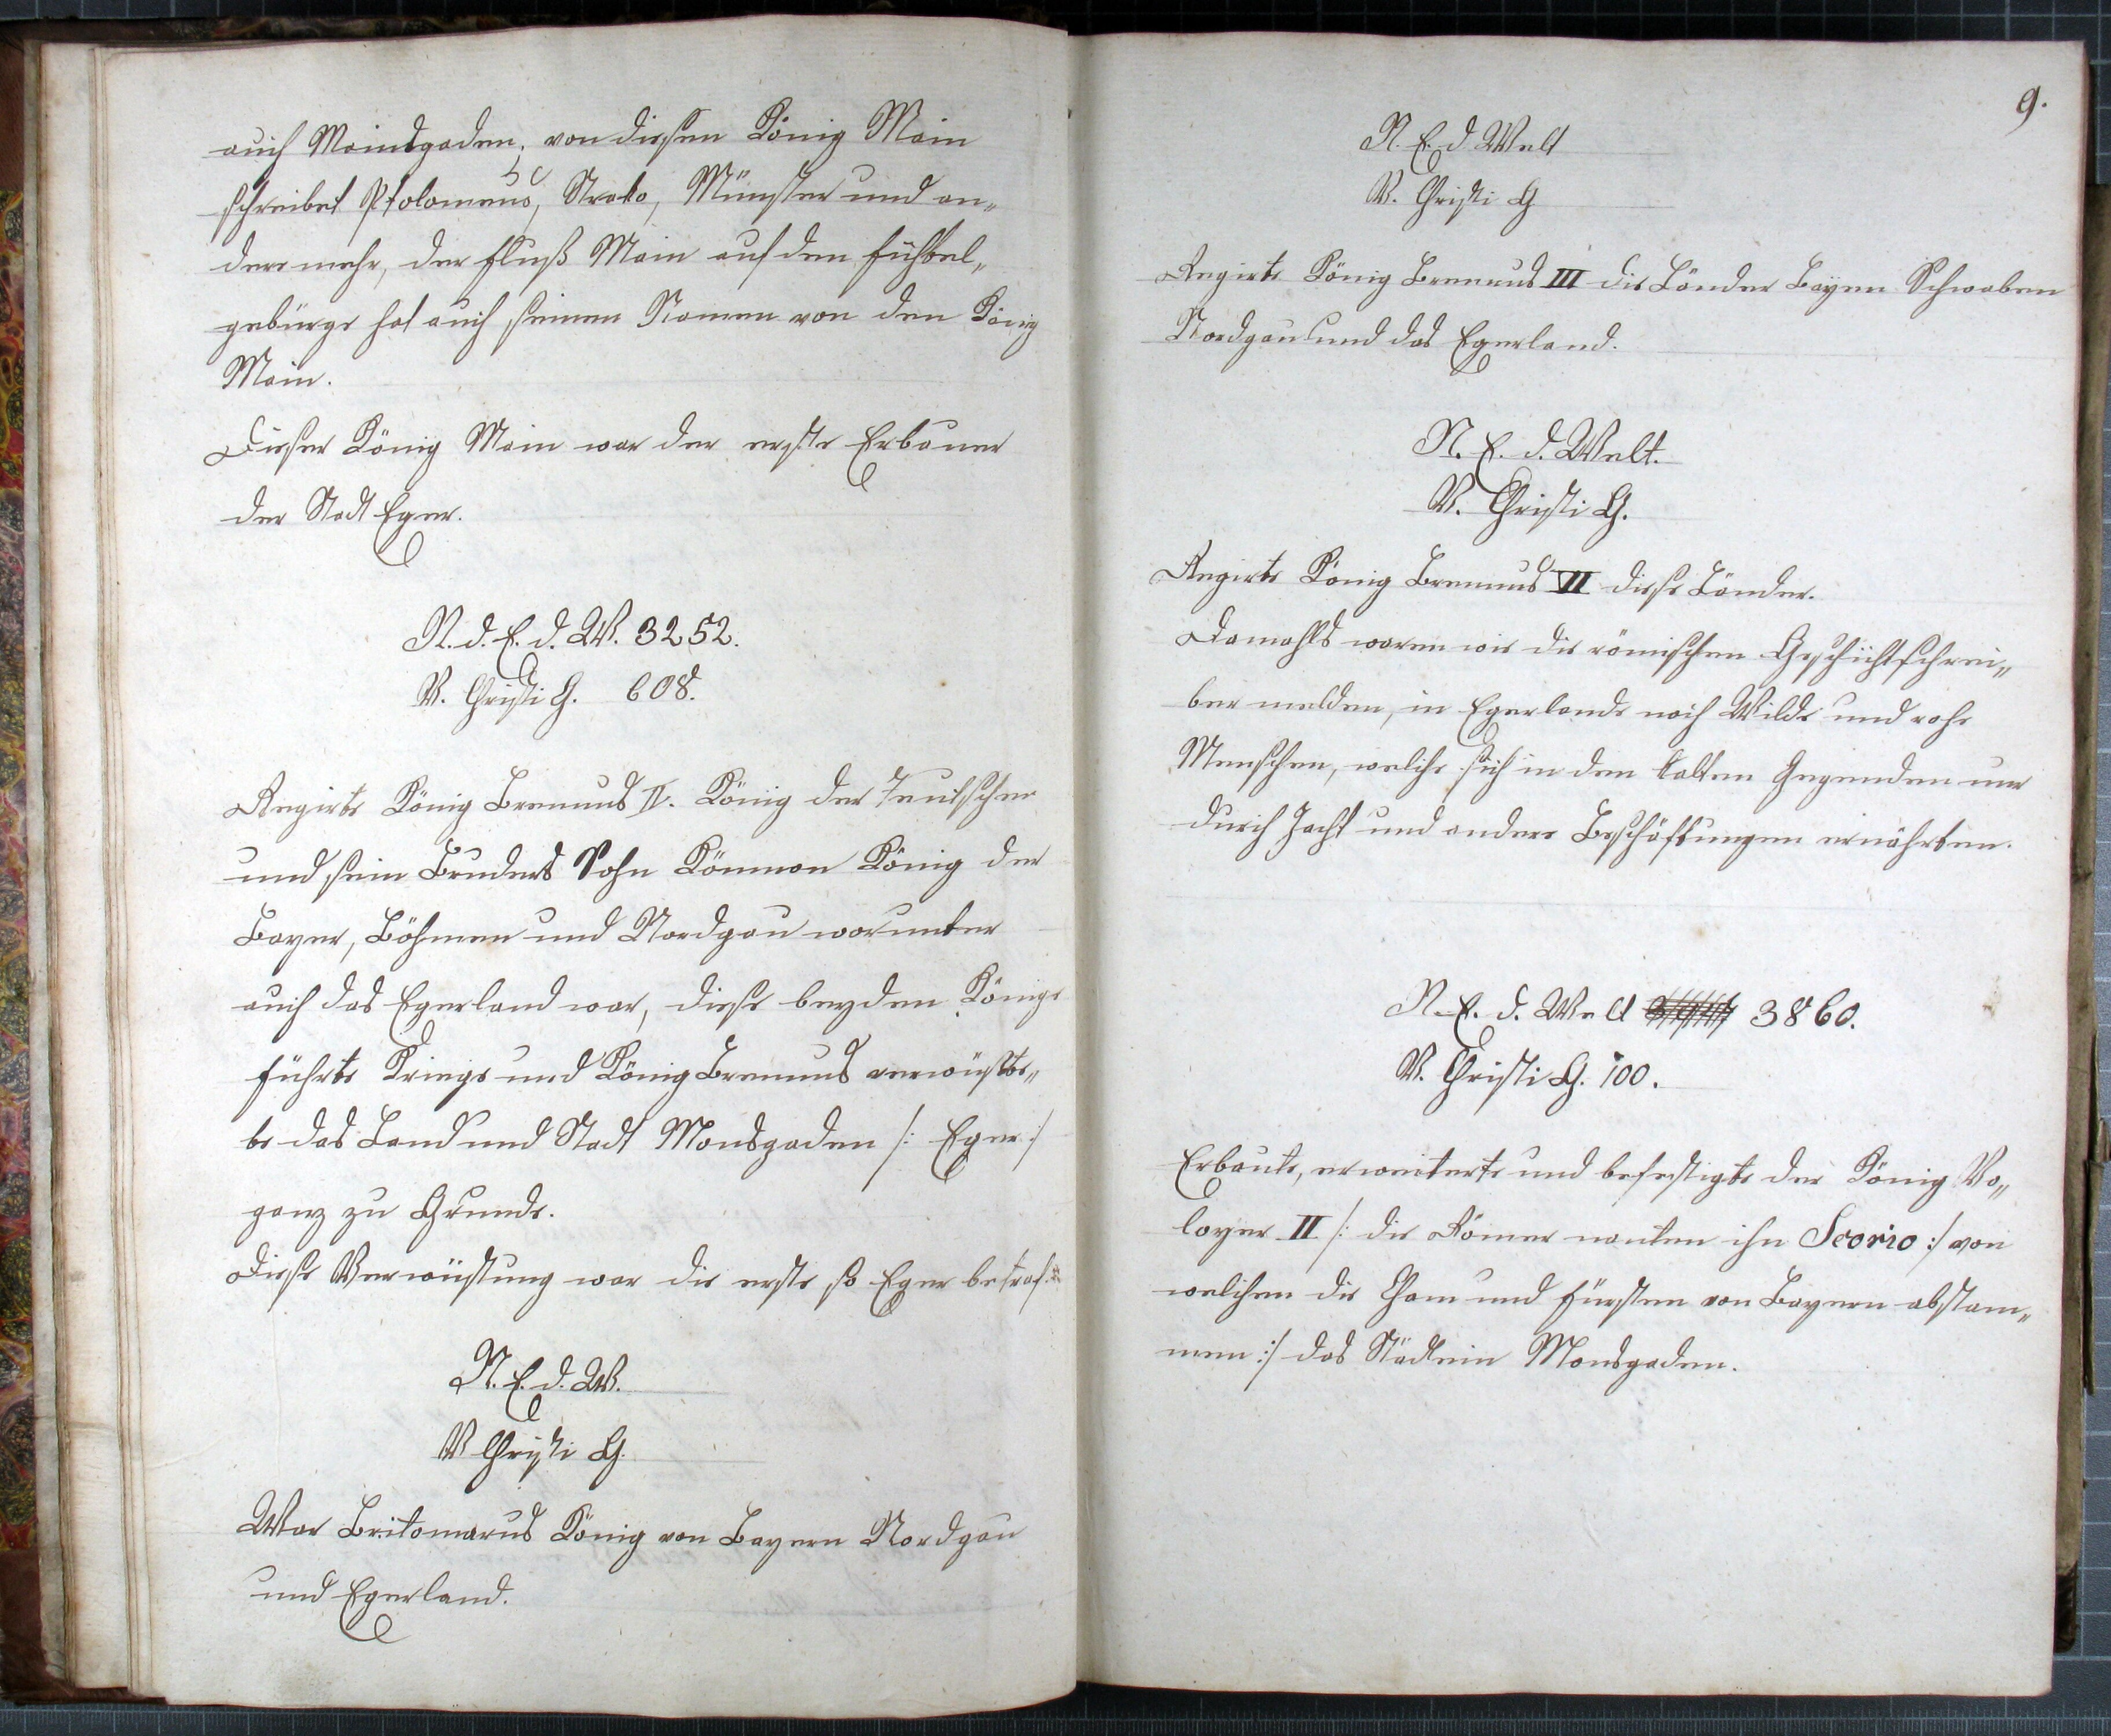 auch Maindgaden; von diesem König Main
schreibet Ptolomeus, Strabo, Münster und an„
dere mehr, der Fluß Main auf dem Fichtel„
gebürge hat auch seinen Namen von den König
Main.
Dieser König Main war der erste Erbauer
der Stadt Eger.
N. d. E. d. W. 3252.
V. Christi G. 608.
Regirte König Brennus IV. König der Teutschen
und sein Bruders Sohn Könman König der
Bayer, Böhmen und Nordgau worunter
auch das Egerland war, diese beyden Könige
führte Kriege und König Brennus verwüste„
te das Land und Stadt Mondgaden /: Eger :/
ganz zu Grunde.
Diese Verwüstung war die erste so Eger betraf.
N. E. d. W.
V Christi G.
War Britomarus König von Bayern Nordgau
und Egerland.
9.
N. E. d Welt
V. Christi G
Regirte König Brennus III die Länder Bayern Schwaben
Nordgau und das Egerland.
N. E. d. Welt.
V. Christi G.
Regirte König Brennus VII diese Länder.
Damahls waren wie die römischen Geschichtschrei„
ber melden, in Egerlande noch Wilde und rohe
Menschen, welche sich in den kalten Gegenden nur
durch Jacht und andere Beschäftungen ernährten.
N. E. d. Welt 3860.
V. Christi G. 100.
Erbaute, erweiterte und befestigte der König Vo„
loyer II /: die Römer nanten ihn Scorio :/ von
welchen die Cham und Fürsten von Bayern abstam„
men :/ das Städlein Mondgaden.